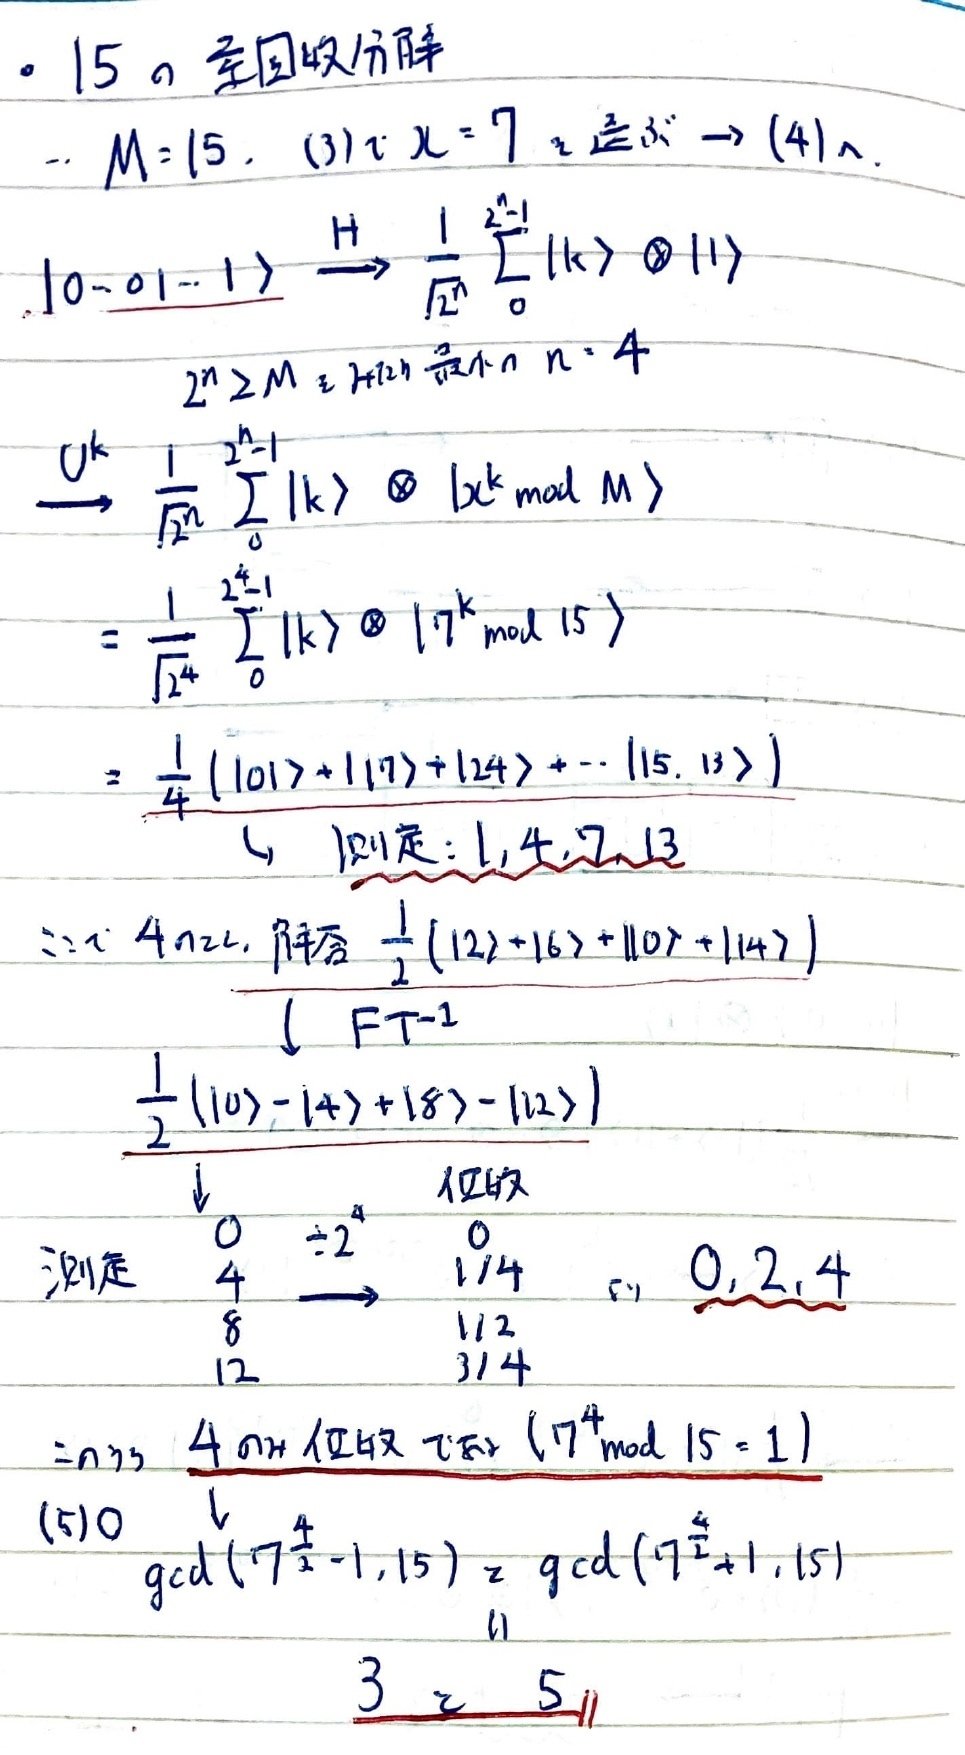 ・15の素因数分解
… M=15. (3)で x=7 を選ぶ → (4)へ.
|0…01…1〉 H→ 1/√2ⁿ Σ₀^{2ⁿ-1} |k〉 ⊗ |1〉
2ⁿ ≥ M をみたす最小の n = 4
Uᵏ→ 1/√2ⁿ Σ₀^{2ⁿ-1} |k〉 ⊗ |xᵏ mod M〉
= 1/√2⁴ Σ₀^{2⁴-1} |k〉 ⊗ |7ᵏ mod 15〉
= 1/4 (|01〉+|17〉+|24〉+…|15. 13〉)
↳ 測定: 1, 4, 7, 13
ここで 4のとし, 解答 1/2 (|2〉+|6〉+|10〉+|14〉)
↓ FT-1
1/2 (|0〉-|4〉+|8〉-|12〉)
↓ 位数
測定 0 ÷2⁴ 0
4 → 1/4 より 0, 2, 4
8 1/2
12 3/4
このうち 4のみ位数である (7⁴ mod 15 = 1)
(5)○ ↓
gcd(7^{4/2}-1, 15) と gcd(7^{4/2}+1, 15)
||
3 と 5 //